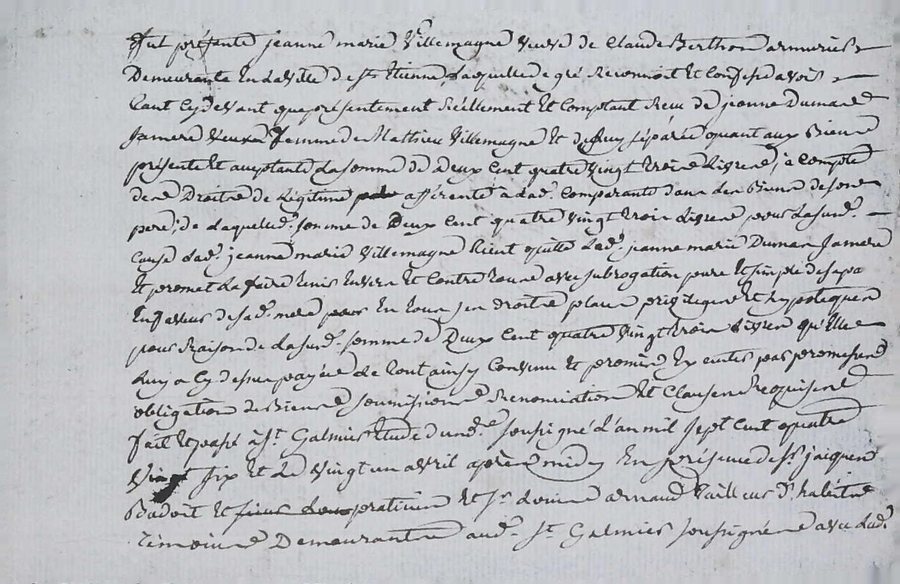 fut présente jeanne marie Villemagne veuve de Claude Berthon armurier
Demeurante En la ville de st. Etienne Laquelle de gré Reconnoit Et Confesse avoir
tant Cy devant que présentement Réellement Et Comptant Reçu de jeanne Dumas
sa mere femme de Mathieu Villemagne Et de luy séparée quant aux Biens
présente Et acceptante La somme de Deux Cent quatre vingt trois Livres, à Compte
de ses Droits de Légitime afférente à lad. Comparante dans les Biens de son
pere, de Laquelle d. somme de Deux Cent quatre vingt trois Livres pour La sus d.
Cause lad. jeanne marie Villemagne tient quitte Lad. jeanne marie Dumas sa mere
Et promet La faire tenir Envers Et Contre tous avec subrogation pure Et simple de sa part
En faveur de sad. mere En tous ses droits places privileges Et hypoteques
pour Raison de La sus d. somme de Deux Cent quatre Vingt trois Livres qu'Elle
Luy a Cy dessus payée De tout ainsy Convenu Et promis Exécuter par promesses
obligation de Biens soumissions Renonciation Et Clauses Requises
fait Et passé à St. Galmier Etude du no. re soussigné L'an mil sept Cent quatre
Vingt six Et Le vingt un avril après midy En présence de sr. jacques
Badoit praticien Et sr. Louis arnaud tailleur d'habits
témoins Demeurants aud. St. Galmier soussignés avec Lad.